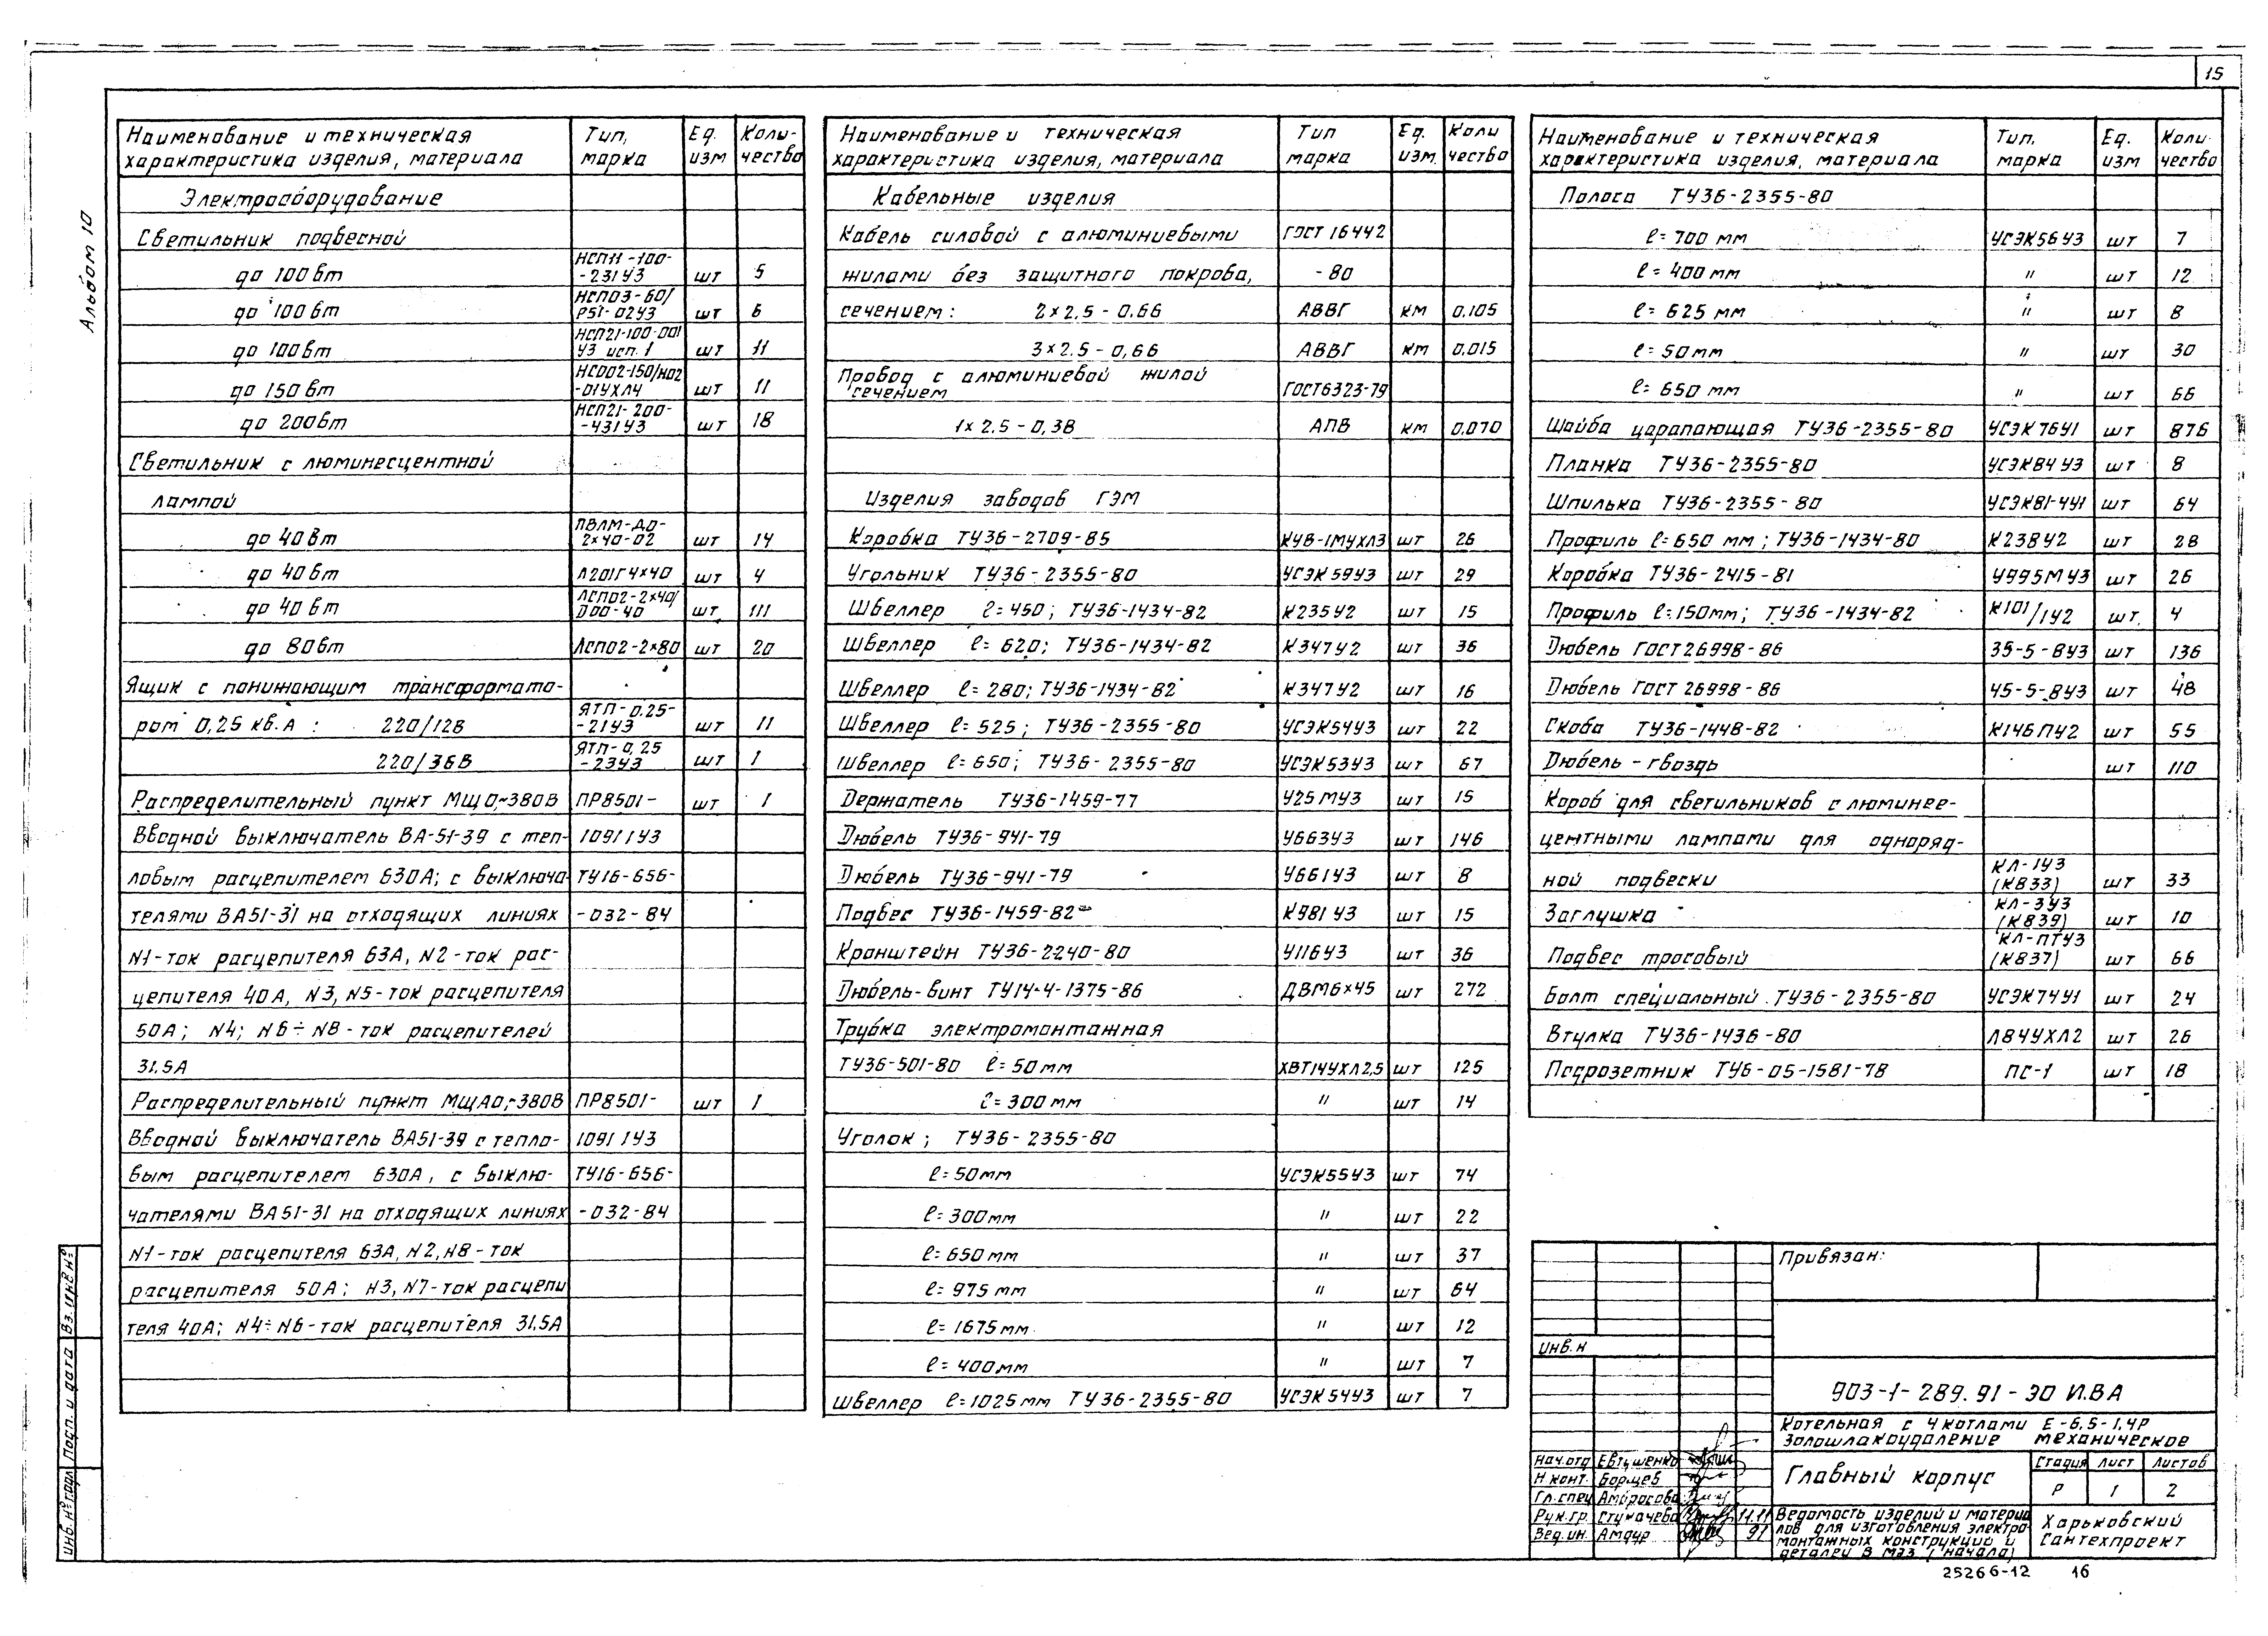 15
Альбом 10
Наименование и техническая характеристика изделия, материала | Тип, марка | Ед. изм | Коли-чество
Электрооборудование
Светильник подвесной
до 100 вт | НСП11-100--231У3 | шт | 5
до 100 вт | НСП03-60/Р51-02У3 | шт | 6
до 100 вт | НСП21-100-001 У3 исп. 1 | шт | 11
до 150 вт | НСО02-150/Н02-01УХЛ4 | шт | 11
до 200 вт | НСП21-200--431У3 | шт | 18
Светильник с люминесцентной
лампой
до 40 вт | ПВЛМ-ДО-2×40-02 | шт | 14
до 40 вт | Л201Г4×40 | шт | 4
до 40 вт | ЛСП02-2×40/D00-40 | шт. | 111
до 80 вт | ЛСП02-2×80 | шт | 20
Ящик с понижающим трансформато-
ром 0,25 кв.А : 220/12В | ЯТП-0.25--21У3 | шт | 11
220/36В | ЯТП-0,25-23У3 | шт | 1
Распределительный пункт МЩ0,~380В | ПР8501- | шт | 1
Вводной выключатель ВА-51-39 с теп- | 1091 1У3
ловым расцепителем 630А; с выключа | ТУ16-656-
телями ВА51-31 на отходящих линиях | -032-84
N1-ток расцепителя 63А, N2-ток рас-
цепителя 40А, N3, N5-ток расцепителя
50А; N4; N6÷N8-ток расцепителей
31.5А
Распределительный пункт МЩА0,~380В | ПР8501- | шт | 1
Вводной выключатель ВА51-39 с тепло- | 1091 1У3
вым расцепителем 630А, с выклю- | ТУ16-656-
чателями ВА51-31 на отходящих линиях | -032-84
N1-ток расцепителя 63А, N2, N8-ток
расцепителя 50А; N3, N7-ток расцепи
теля 40А; N4÷N6-ток расцепителя 31.5А
Наименование и техническая характеристика изделия, материала | Тип марка | Ед. изм. | Коли чество
Кабельные изделия
Кабель силовой с алюминиевыми | ГОСТ 16442
жилами без защитного покрова, | -80
сечением: 2×2.5-0.66 | АВВГ | км | 0,105
3×2.5-0,66 | АВВГ | км | 0.015
Провод с алюминиевой жилой сечением | ГОСТ6323-79
1×2.5-0,38 | АПВ | км | 0.070
Изделия заводов ГЭМ
Коробка ТУ36-2709-85 | КУВ-1МУХЛ3 | шт | 26
Угольник ТУ36-2355-80 | УСЭК59У3 | шт | 29
Швеллер ℓ=450; ТУ36-1434-82 | К235У2 | шт | 15
Швеллер ℓ=620; ТУ36-1434-82 | К347У2 | шт | 36
Швеллер ℓ=280; ТУ36-1434-82 | К347У2 | шт | 16
Швеллер ℓ=525; ТУ36-2355-80 | УСЭК54У3 | шт | 22
Швеллер ℓ=650; ТУ36-2355-80 | УСЭК53У3 | шт | 67
Держатель ТУ36-1459-77 | У25МУ3 | шт | 15
Дюбель ТУ36-941-79 | У663У3 | шт | 146
Дюбель ТУ36-941-79 | У661У3 | шт | 8
Подвес ТУ36-1459-82 | К981У3 | шт | 15
Кронштейн ТУ36-2240-80 | У116У3 | шт | 36
Дюбель-винт ТУ14-4-1375-86 | ДВМ6×45 | шт | 272
Трубка электромонтажная
ТУ36-501-80 ℓ=50мм | ХВТ14УХЛ2,5 | шт | 125
ℓ=300мм | " | шт | 14
Уголок; ТУ36-2355-80
ℓ=50мм | УСЭК55У3 | шт | 74
ℓ=300мм | " | шт | 22
ℓ=650мм | " | шт | 37
ℓ=975мм | " | шт | 64
ℓ=1675мм | " | шт | 12
ℓ=400мм | " | шт | 7
Швеллер ℓ=1025мм ТУ36-2355-80 | УСЭК54У3 | шт | 7
Наименование и техническая характеристика изделия, материала | Тип, марка | Ед. изм | Коли-чество
Полоса ТУ36-2355-80
ℓ=700 мм | УСЭК56У3 | шт | 7
ℓ=400мм | " | шт | 12
ℓ=625 мм | " | шт | 8
ℓ=50мм | " | шт | 30
ℓ=650 мм | " | шт | 66
Шайба царапающая ТУ36-2355-80 | УСЭК76У1 | шт | 876
Планка ТУ36-2355-80 | УСЭК84У3 | шт | 8
Шпилька ТУ36-2355-80 | УСЭК81-4У1 | шт | 64
Профиль ℓ=650 мм; ТУ36-1434-80 | К238У2 | шт | 28
Коробка ТУ36-2415-81 | У995МУ3 | шт | 26
Профиль ℓ=150мм; ТУ36-1434-82 | К101/1У2 | шт. | 4
Дюбель ГОСТ26998-86 | 35-5-8У3 | шт | 136
Дюбель ГОСТ 26998-86 | 45-5-8У3 | шт | 48
Скоба ТУ36-1448-82 | К146ПУ2 | шт | 55
Дюбель-гвоздь | шт | 110
Короб для светильников с люминес-
центными лампами для одноряд-
ной подвески | КЛ-1У3 (К833) | шт | 33
Заглушка | КЛ-3У3 (К839) | шт | 10
Подвес тросовый | КЛ-ПТУ3 (К837) | шт | 66
Болт специальный ТУ36-2355-80 | УСЭК74У1 | шт | 24
Втулка ТУ36-1436-80 | Л84УХЛ2 | шт | 26
Подрозетник ТУ6-05-1581-78 | ПС-1 | шт | 18
Привязан:
инв.н
903-1-289.91-ЭО И.ВА
Котельная с 4 котлами Е-6,5-1,4Р
Золошлакоудаление механическое
Нач.отд Евтушенко
Н конт. Борщев
Гл.спец Амбросова
Рук.гр. Стукачева 11.11
Вед.ин. Амдур 91
Главный корпус
Стадия Лист Листов
Р 1 2
Ведомость изделий и материа
лов для изготовления электро
монтажных конструкций и
деталей в МЭЗ (начало)
Харьковский
Сантехпроект
25266-12 16
Инв.N°подл Подп. и дата Вз.инв N°